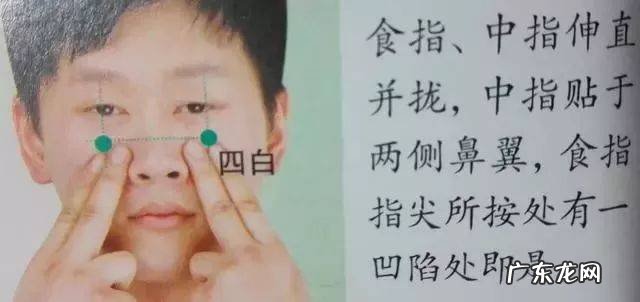 四白
食指、中指伸直
并拢，中指贴于
两侧鼻翼，食指
指尖所按处有一
凹陷处即是
广东龙网